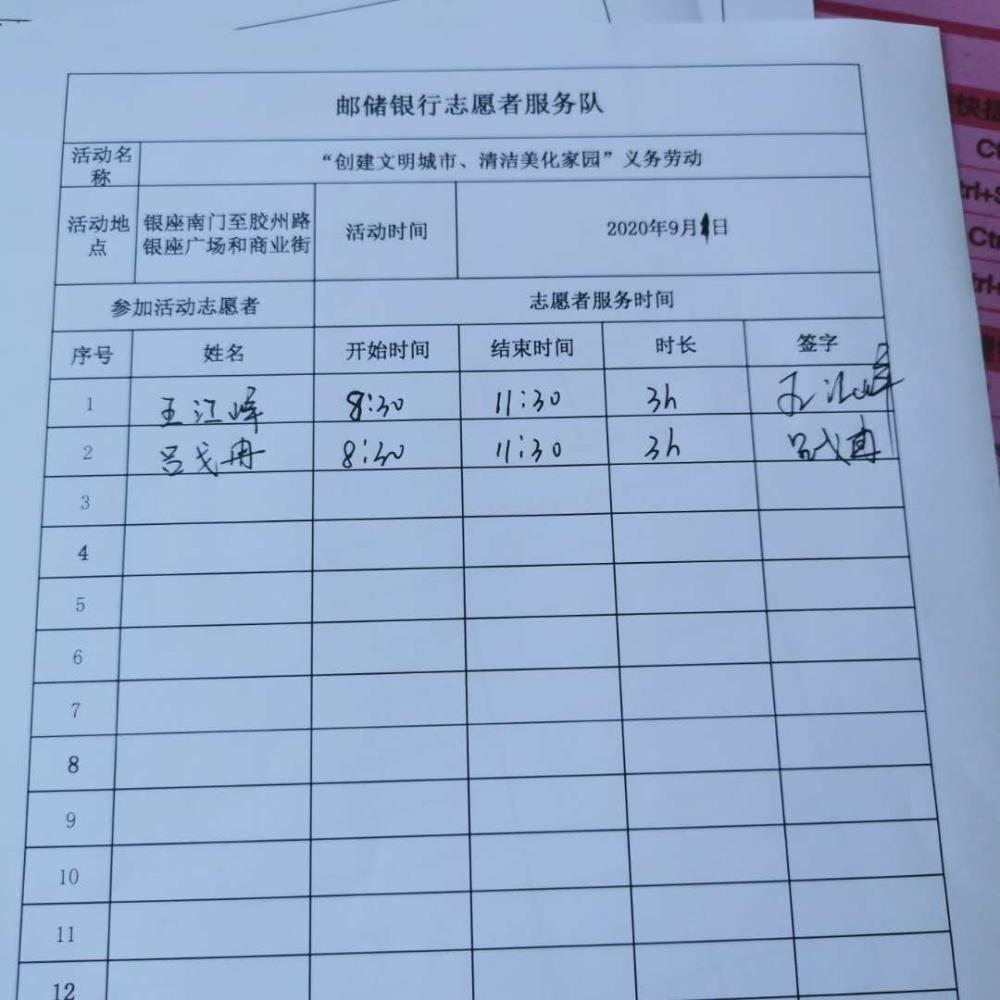 邮储银行志愿者服务队
活动名
称
“创建文明城市、清洁美化家园”义务劳动
活动地
点
银座南门至胶州路
银座广场和商业街
活动时间
2020年9月1日
参加活动志愿者
志愿者服务时间
序号
姓名
开始时间
结束时间
时长
签字
1
王江峰
8:30
11:30
3h
王江峰
2
吕戈冉
8:30
11:30
3h
吕戈冉
3
4
5
6
7
8
9
10
11
12
快捷
Ct
trl+S
Ctr
trl+